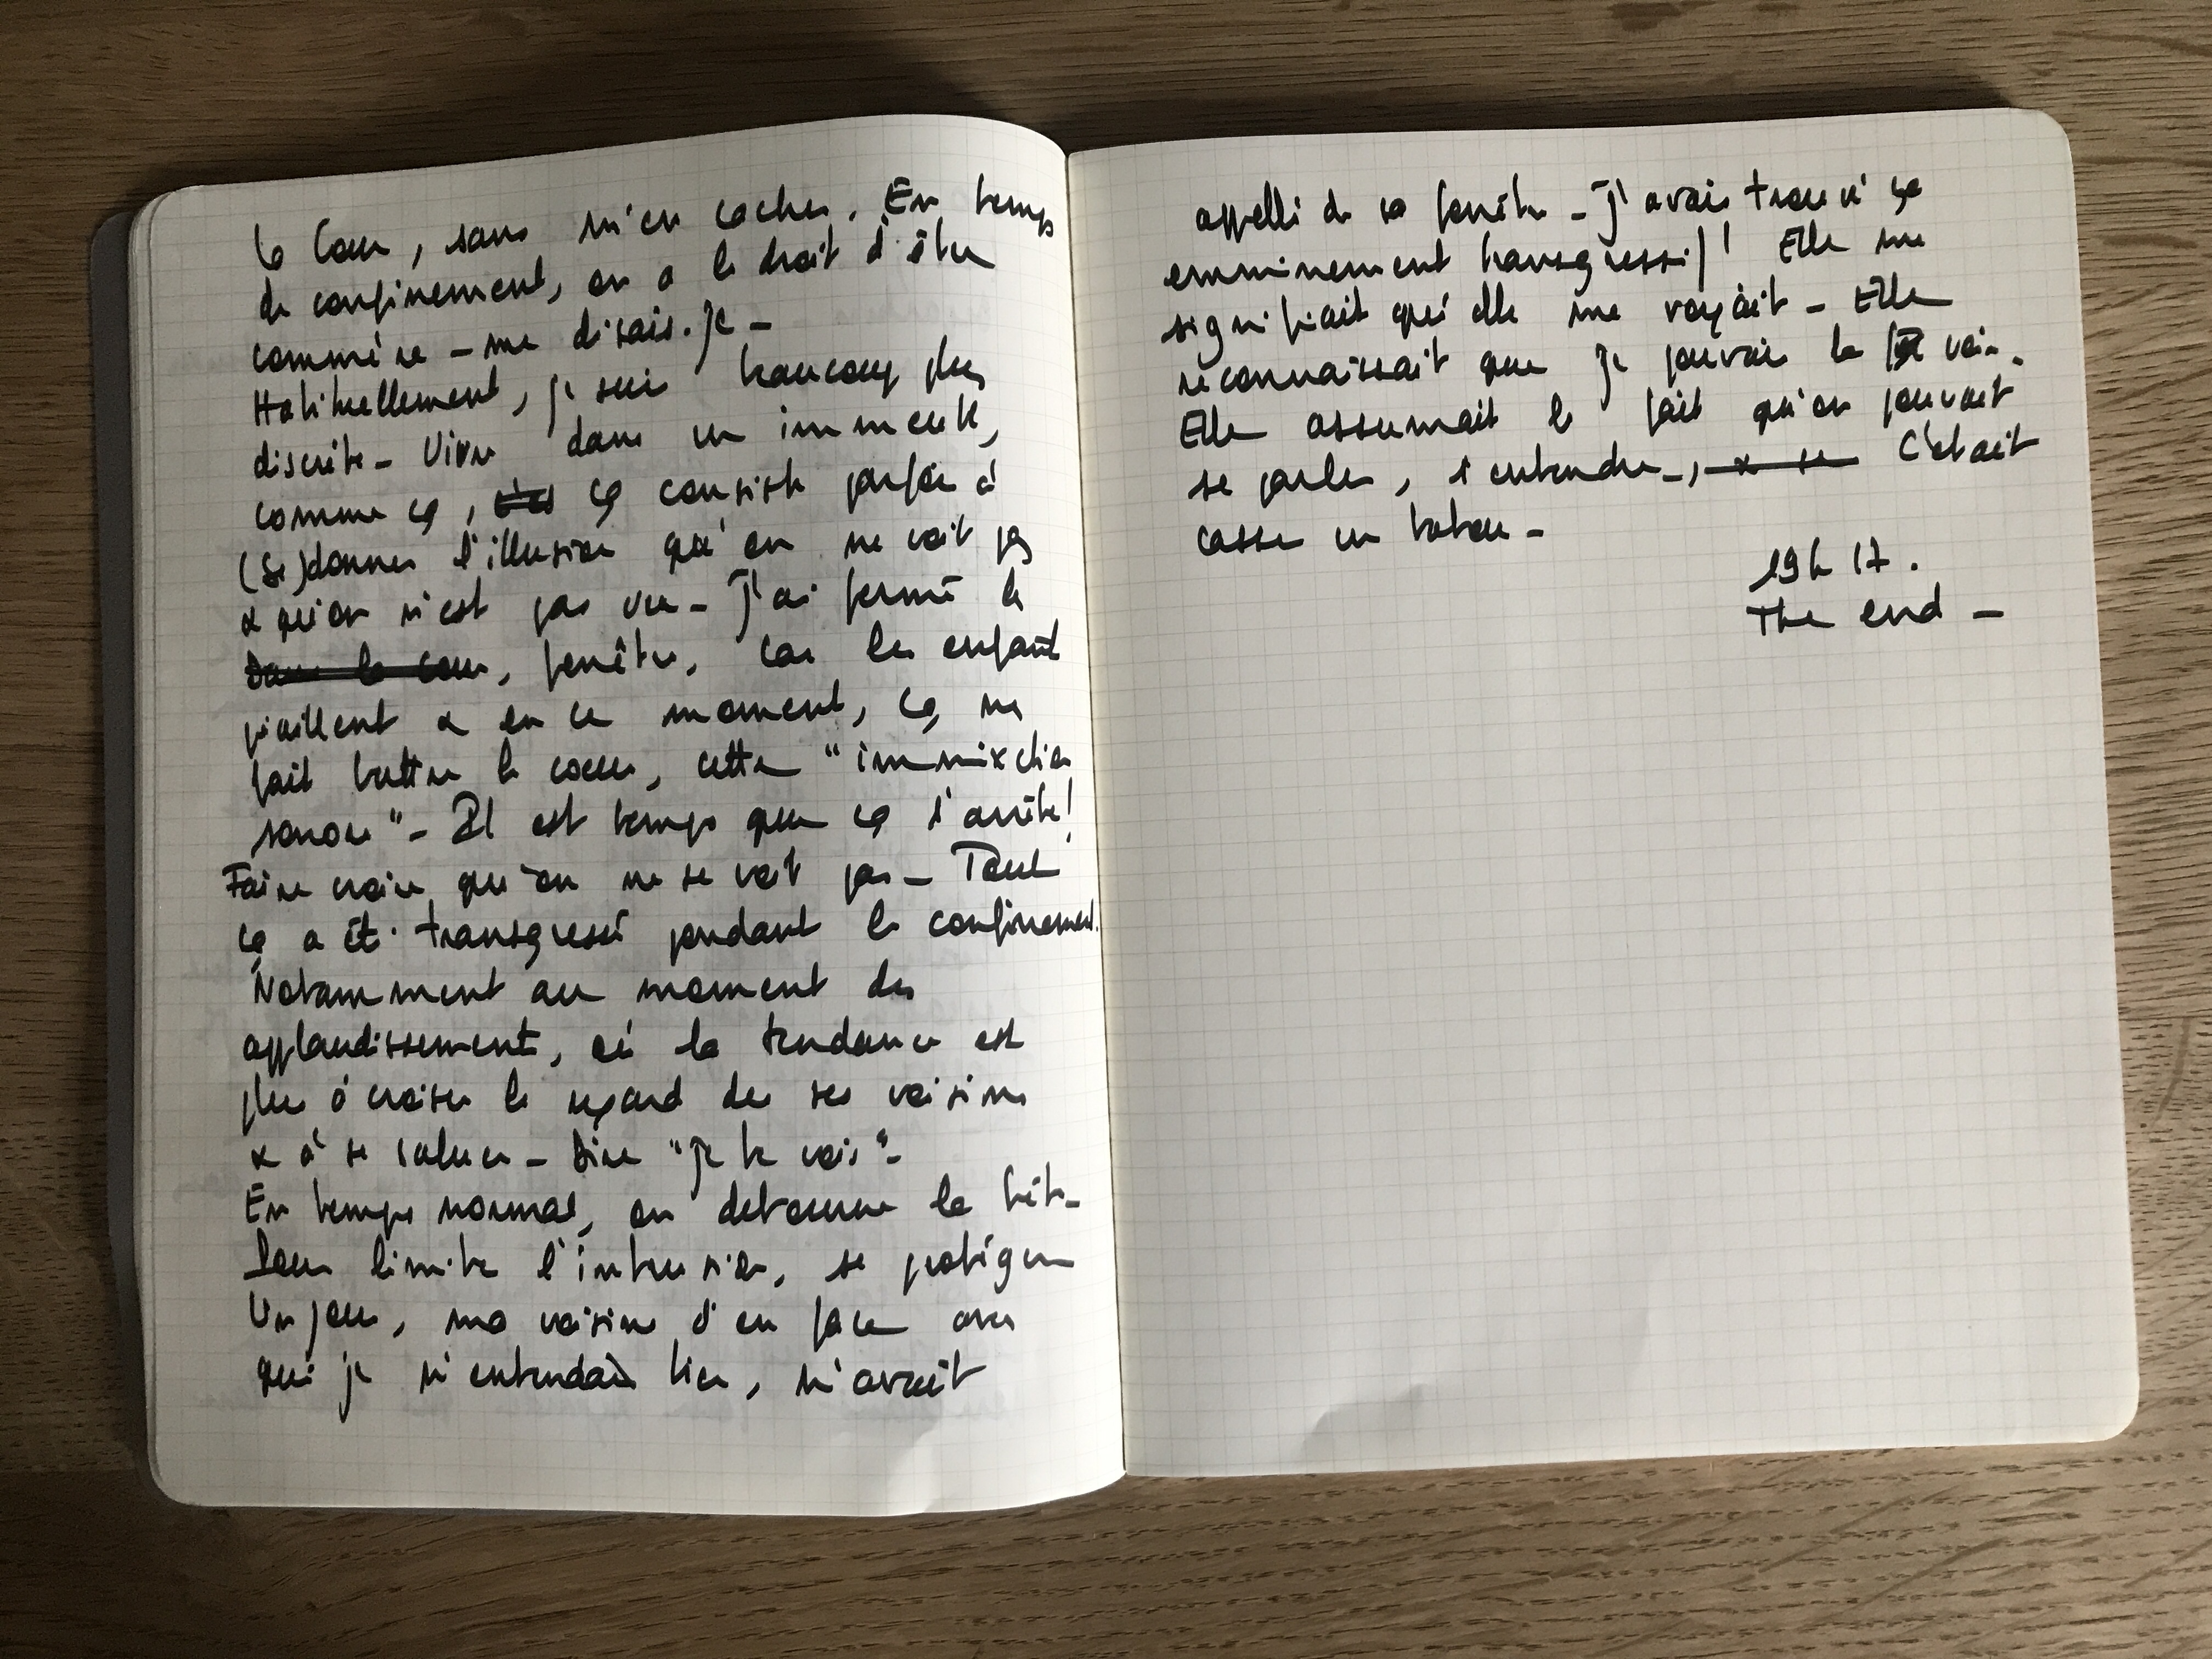 la Cour, sans m'en cacher. En temps
de confinement, on a le droit d'être
commère - me disais-je -
Habituellement, je suis beaucoup plus
discrète - Vivre dans un immeuble,
comme ça, ça consiste parfois à
(se) donner l'illusion qu'on ne voit pas
& qu'on n'est pas vu - J'ai fermé la
Dans la cour, fenêtre, car les enfants
piaillent & en ce moment, ça me
fait battre le coeur, cette "immixtion
sonore" - Il est temps que ça s'arrête!
Faire croire qu'on ne se voit pas - Tout
ça a été transgressé pendant le confinement.
Notamment au moment des
applaudissements, où la tendance est
plus à croiser le regard de ses voisins
& à se saluer - Dire "je te vois" -
En temps normal, on detourne la tête -
Pour limiter l'intrusion, se protéger
Un jour, ma voisine d'en face avec
qui je m'entendais bien, m'avait
appelé de sa fenêtre - J'avais trouvé ça
emminement transgressif! Elle me
signifiait qu'elle me voyait - Elle
reconnaissait que je pouvais la voir.
Elle assumait le fait qu'on pouvait
se parler, s'entendre -, C'était
casser un tabou -
19h 17.
The end -